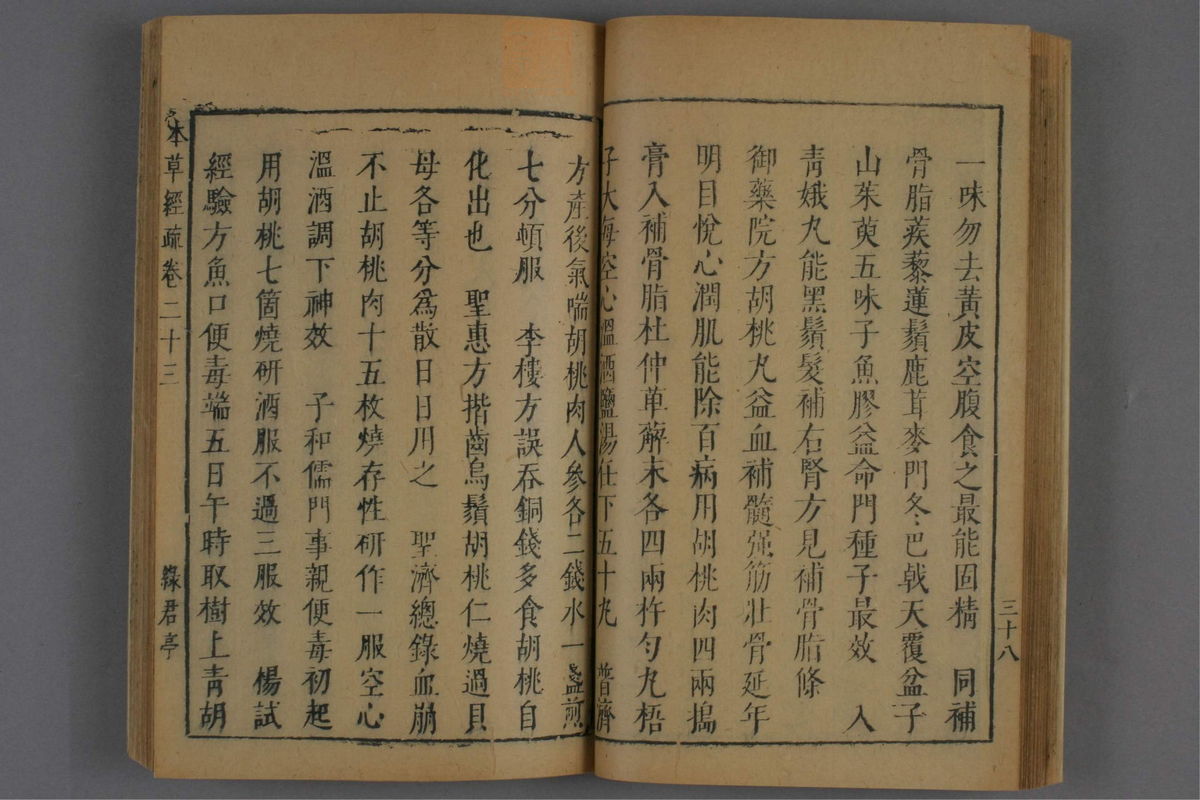 三十八
一味勿去黃皮空腹食之最能固精　同補
骨脂蒺藜蓮鬚鹿茸麥門冬巴戟天覆盆子
山茱萸五味子魚膠益命門種子最效　入
靑娥丸能黑鬚髮補右腎方見補骨脂條
御藥院方胡桃丸益血補髓强筋壯骨延年
明目悅心潤肌能除百病用胡桃肉四兩搗
膏入補骨脂杜仲萆薢末各四兩杵勻丸梧
子大每空心溫酒鹽湯任下五十丸　普濟
方產後氣喘胡桃肉人參各二錢水一盞煎
七分頓服　李樓方誤吞銅錢多食胡桃自
化出也　聖惠方揩齒烏鬚胡桃仁燒過貝
母各等分爲散日日用之　聖濟總錄血崩
不止胡桃肉十五枚燒存性研作一服空心
溫酒調下神效　子和儒門事親便毒初起
用胡桃七箇燒研酒服不過三服效　楊試
經驗方魚口便毒端五日午時取樹上靑胡
本草經疏卷二十三　綠君亭